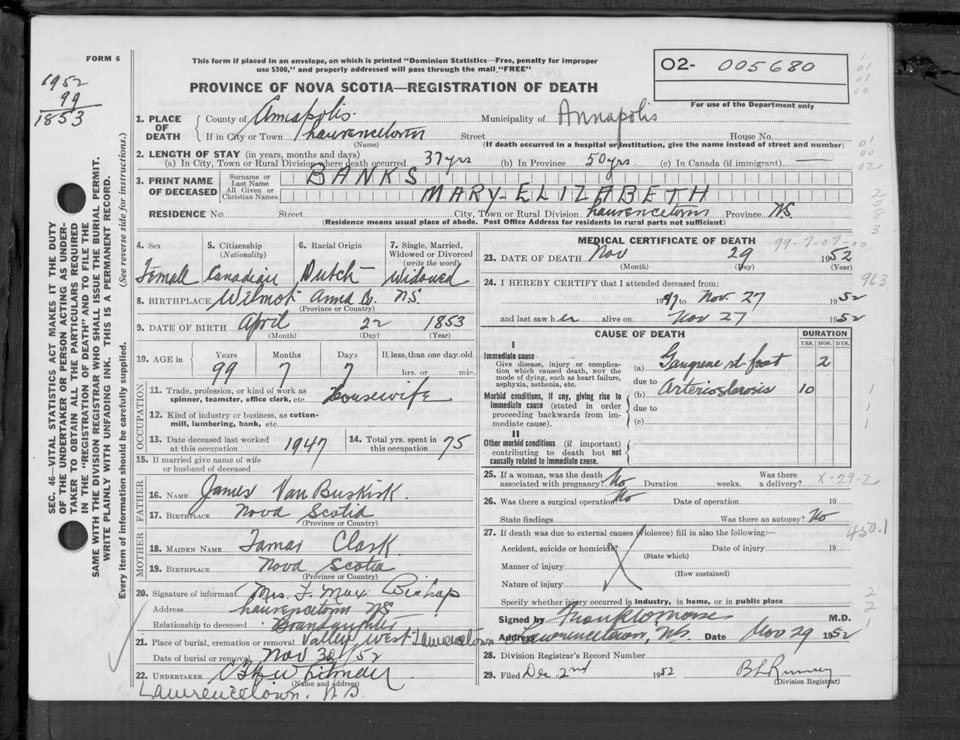 FORM 6
1952
99
1853
This form if placed in an envelope, on which is printed "Dominion Statistics—Free, penalty for improper
use $300," and properly addressed will pass through the mail "FREE"
PROVINCE OF NOVA SCOTIA—REGISTRATION OF DEATH
O2- 005680
For use of the Department only
SEC. 46—VITAL STATISTICS ACT MAKES IT THE DUTY
OF THE UNDERTAKER OR PERSON ACTING AS UNDER-
TAKER TO OBTAIN ALL THE PARTICULARS REQUIRED
IN THE "REGISTRATION OF DEATH" AND TO FILE THE
SAME WITH THE DIVISION REGISTRAR WHO SHALL ISSUE THE BURIAL PERMIT.
WRITE PLAINLY WITH UNFADING INK. THIS IS A PERMANENT RECORD.
Every item of information should be carefully supplied. (See reverse side for instructions.)
1. PLACE OF DEATH County of Annapolis Municipality of Annapolis
If in City or Town Lawrencetown Street House No.
(Name) (If death occurred in a hospital or institution, give the name instead of street and number)
2. LENGTH OF STAY (in years, months and days)
(a) In City, Town or Rural Division where death occurred 37 yrs (b) In Province 50 yrs. (c) In Canada (if immigrant) —
3. PRINT NAME OF DECEASED Surname or Last Name BANKS
All Given or Christian Names MARY-ELIZABETH
RESIDENCE No. Street City, Town or Rural Division Lawrencetown Province N.S.
(Residence means usual place of abode. Post Office Address for residents in rural parts not sufficient)
4. Sex 5. Citizenship (Nationality) 6. Racial Origin 7. Single, Married, Widowed or Divorced (write the word)
Female Canadian Dutch Widowed
8. BIRTHPLACE Wilmot Anna Co. N.S.
(Province or Country)
9. DATE OF BIRTH April 22 1853
(Month) (Day) (Year)
10. AGE in Years Months Days If less than one day old
99 7 7 hrs. or min.
OCCUPATION
11. Trade, profession, or kind of work as
spinner, teamster, office clerk, etc. Housewife
12. Kind of industry or business, as cotton-
mill, lumbering, bank, etc.
13. Date deceased last worked at this occupation 1947 14. Total yrs. spent in this occupation 75
15. If married give name of wife
or husband of deceased
FATHER
16. NAME James Van Buskirk
17. BIRTHPLACE Nova Scotia
(Province or Country)
MOTHER
18. MAIDEN NAME Tamar Clark
19. BIRTHPLACE Nova Scotia
(Province or Country)
20. Signature of informant Mrs. F. Max Bishop
Address Lawrencetown NS
Relationship to deceased Grandaughter
21. Place of burial, cremation or removal Valley West Lawrencetown
Date of burial or removal Nov 30/52
22. UNDERTAKER Whitman
(Name and address)
Lawrencetown, N.S.
MEDICAL CERTIFICATE OF DEATH 99-7-07-00
23. DATE OF DEATH Nov 29 1952
(Month) (Day) (Year)
24. I HEREBY CERTIFY that I attended deceased from: 963
1947 to Nov. 27 1952
and last saw her alive on Nov 27 1952
CAUSE OF DEATH DURATION
YRS. MOS. DYS.
I
Immediate cause
Give disease, injury or complication which caused death, not the mode of dying, such as heart failure, asphyxia, asthenia, etc.
(a) Gangrene rt. foot 2
due to
Morbid conditions, if any, giving rise to immediate cause (stated in order proceeding backwards from immediate cause).
(b) Arteriosclerosis 10
due to
(c)
II
Other morbid conditions (if important) contributing to death but not causally related to immediate cause.
25. If a woman, was the death associated with pregnancy? No Duration weeks. Was there a delivery? X-29-2
26. Was there a surgical operation? No Date of operation 19
State findings Was there an autopsy? No
27. If death was due to external causes (violence) fill in also the following:— 450.1
Accident, suicide or homicide? Date of injury 19
(State which)
Manner of injury
(How sustained)
Nature of injury
Specify whether injury occurred in industry, in home, or in public place
Signed by M.D.
Address Lawrencetown, N.S. Date Nov 29 1952
28. Division Registrar's Record Number
29. Filed Dec 2nd 1952
(Division Registrar)